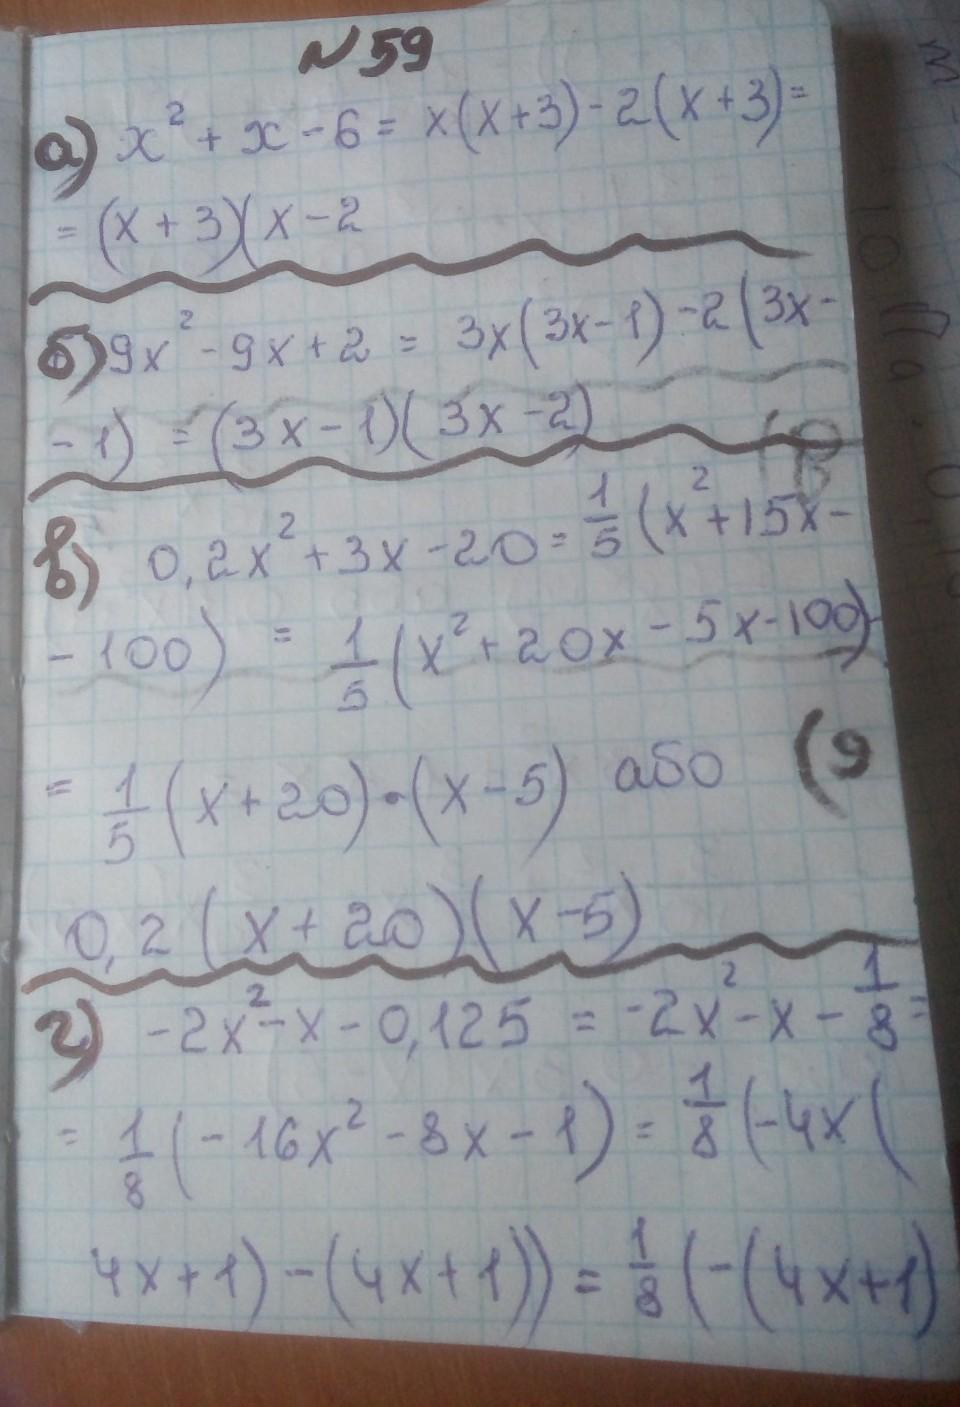 N 59
а) x² + x - 6 = x(x+3) - 2(x+3) =
= (x + 3)(x - 2
б) 9x² - 9x + 2 = 3x(3x - 1) - 2(3x -
- 1) = (3x - 1)(3x - 2)
в) 0,2x² + 3x - 20 = 1/5 (x² + 15x -
- 100) = 1/5 (x² + 20x - 5x - 100)
= 1/5 (x + 20) · (x - 5) або
0,2 (x + 20)(x - 5)
г) -2x² - x - 0,125 = -2x² - x - 1/8 =
= 1/8 (-16x² - 8x - 1) = 1/8 (-4x (
4x + 1) - (4x + 1)) = 1/8 (-(4x+1)